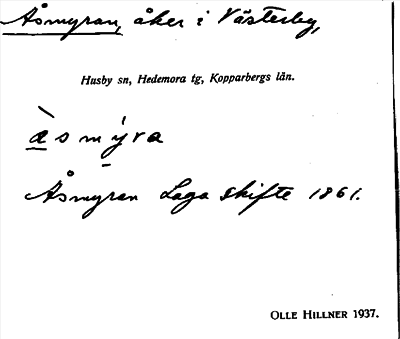 Åsmyran, åker i Västerby,
Husby sn, Hedemora tg, Kopparbergs län.
Åsmyran Laga skifte 1861.
OLLE HILLNER 1937.